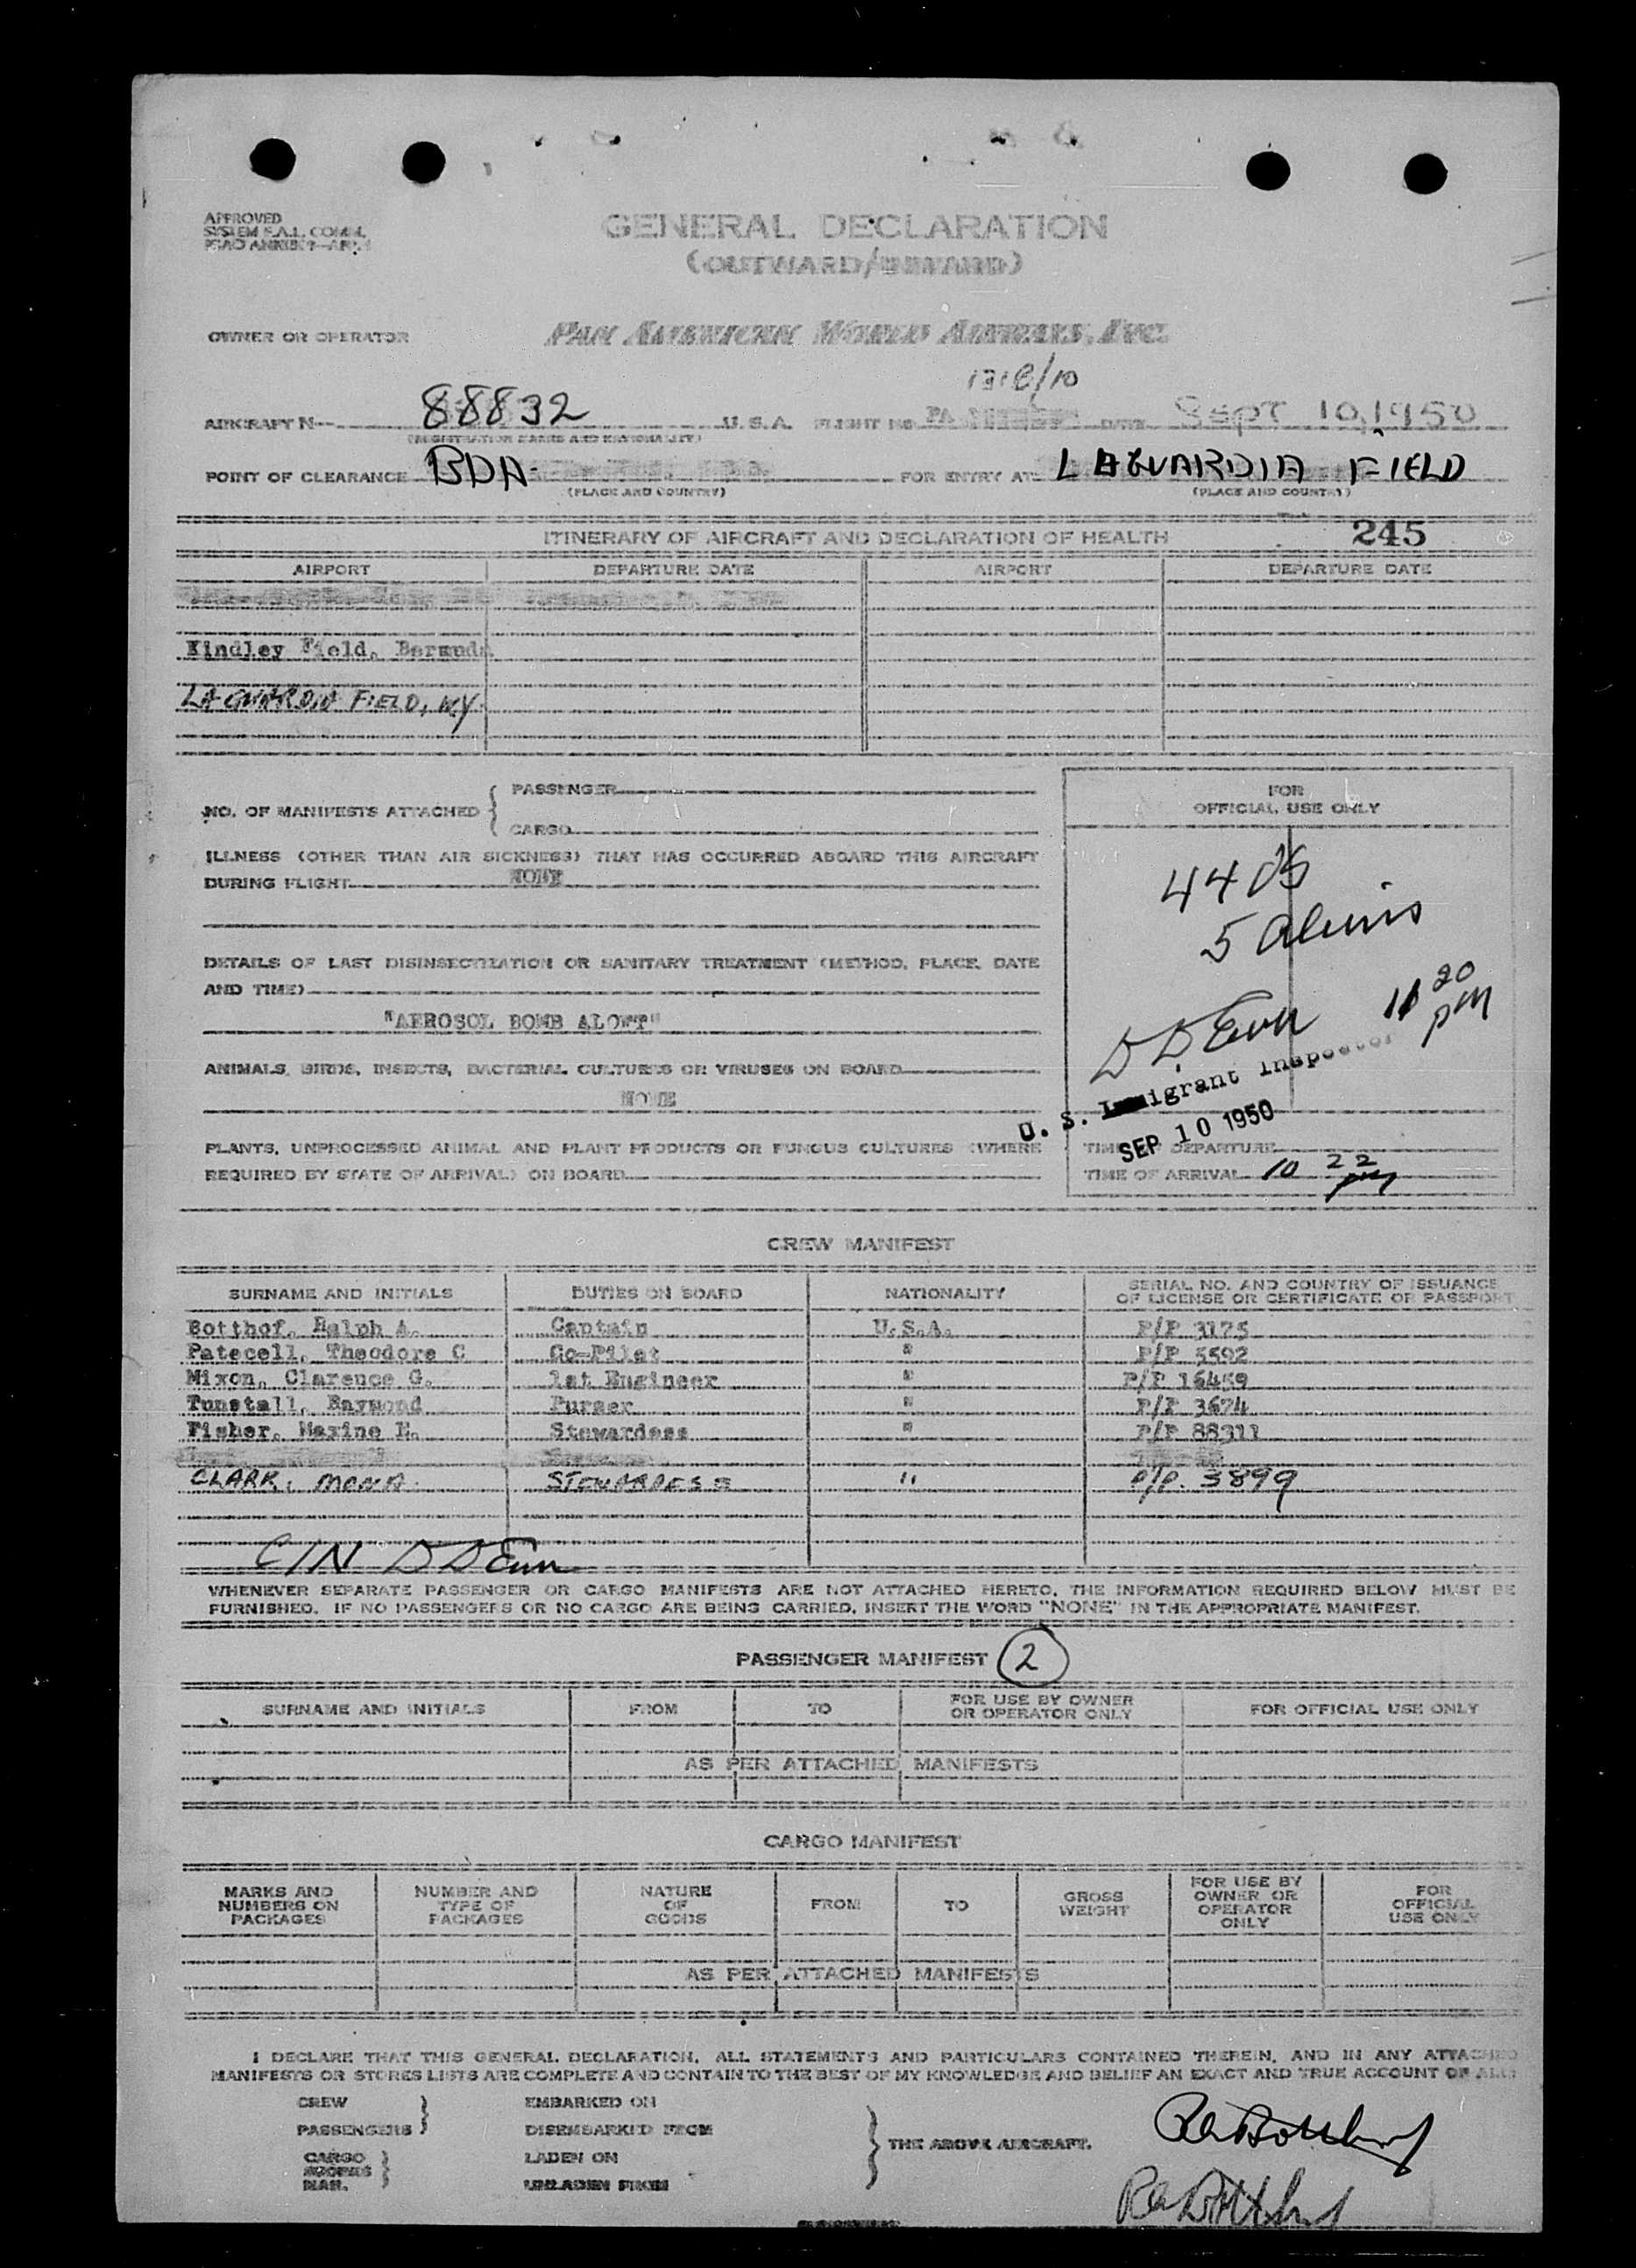 APPROVED
SYSTEM F.A.L. COMM.
GENERAL DECLARATION
(OUTWARD/INWARD)
OWNER OR OPERATOR PAN AMERICAN WORLD AIRWAYS, INC.
1318/10
AIRCRAFT N-- 88832 U.S.A. FLIGHT NO PA DATE Sept 10, 1950
(REGISTRATION MARKS AND NATIONALITY)
POINT OF CLEARANCE BDA- FOR ENTRY AT LAGUARDIA FIELD
(PLACE AND COUNTRY) (PLACE AND COUNTRY)
ITINERARY OF AIRCRAFT AND DECLARATION OF HEALTH 245
AIRPORT DEPARTURE DATE AIRPORT DEPARTURE DATE
Kindley Field, Bermuda
LAGUARDIA FIELD, N.Y.
NO. OF MANIFESTS ATTACHED { PASSENGER
CARGO
FOR
OFFICIAL USE ONLY
ILLNESS (OTHER THAN AIR SICKNESS) THAT HAS OCCURRED ABOARD THIS AIRCRAFT
DURING FLIGHT NONE
44
5 Aliens
DETAILS OF LAST DISINSECTIZATION OR SANITARY TREATMENT (METHOD, PLACE, DATE
AND TIME)
"AEROSOL BOMB ALOFT"
11 20 pm
U. S. Immigrant Inspector
ANIMALS, BIRDS, INSECTS, BACTERIAL CULTURES OR VIRUSES ON BOARD
NONE
SEP 10 1950
PLANTS, UNPROCESSED ANIMAL AND PLANT PRODUCTS OR FUNGUS CULTURES (WHERE
REQUIRED BY STATE OF ARRIVAL) ON BOARD
TIME OF DEPARTURE
TIME OF ARRIVAL 10 22 pm
CREW MANIFEST
SURNAME AND INITIALS DUTIES ON BOARD NATIONALITY SERIAL NO. AND COUNTRY OF ISSUANCE
OF LICENSE OR CERTIFICATE OR PASSPORT
Botthof, Ralph A. Captain U.S.A. P/P 3175
Patecell, Theodore C Co-Pilot " P/P 5592
Mixon, Clarence G. 1st Engineer " P/P 16459
Tunstall, Raymond Purser " P/P 3674
Fisher, Maxine E. Stewardess " P/P 88311
CLARK, MONA STEWARDESS " P/P. 3899
WHENEVER SEPARATE PASSENGER OR CARGO MANIFESTS ARE NOT ATTACHED HERETO, THE INFORMATION REQUIRED BELOW MUST BE
FURNISHED. IF NO PASSENGERS OR NO CARGO ARE BEING CARRIED, INSERT THE WORD "NONE" IN THE APPROPRIATE MANIFEST.
PASSENGER MANIFEST 2
SURNAME AND INITIALS FROM TO FOR USE BY OWNER
OR OPERATOR ONLY FOR OFFICIAL USE ONLY
AS PER ATTACHED MANIFESTS
CARGO MANIFEST
MARKS AND
NUMBERS ON
PACKAGES NUMBER AND
TYPE OF
PACKAGES NATURE
OF
GOODS FROM TO GROSS
WEIGHT FOR USE BY
OWNER OR
OPERATOR
ONLY FOR
OFFICIAL
USE ONLY
AS PER ATTACHED MANIFESTS
I DECLARE THAT THIS GENERAL DECLARATION, ALL STATEMENTS AND PARTICULARS CONTAINED THEREIN, AND IN ANY ATTACHED
MANIFESTS OR STORES LISTS ARE COMPLETE AND CONTAIN TO THE BEST OF MY KNOWLEDGE AND BELIEF AN EXACT AND TRUE ACCOUNT OF ALL:
CREW EMBARKED ON
PASSENGERS DISEMBARKED FROM
CARGO LADEN ON THE ABOVE AIRCRAFT.
UNLADEN FROM